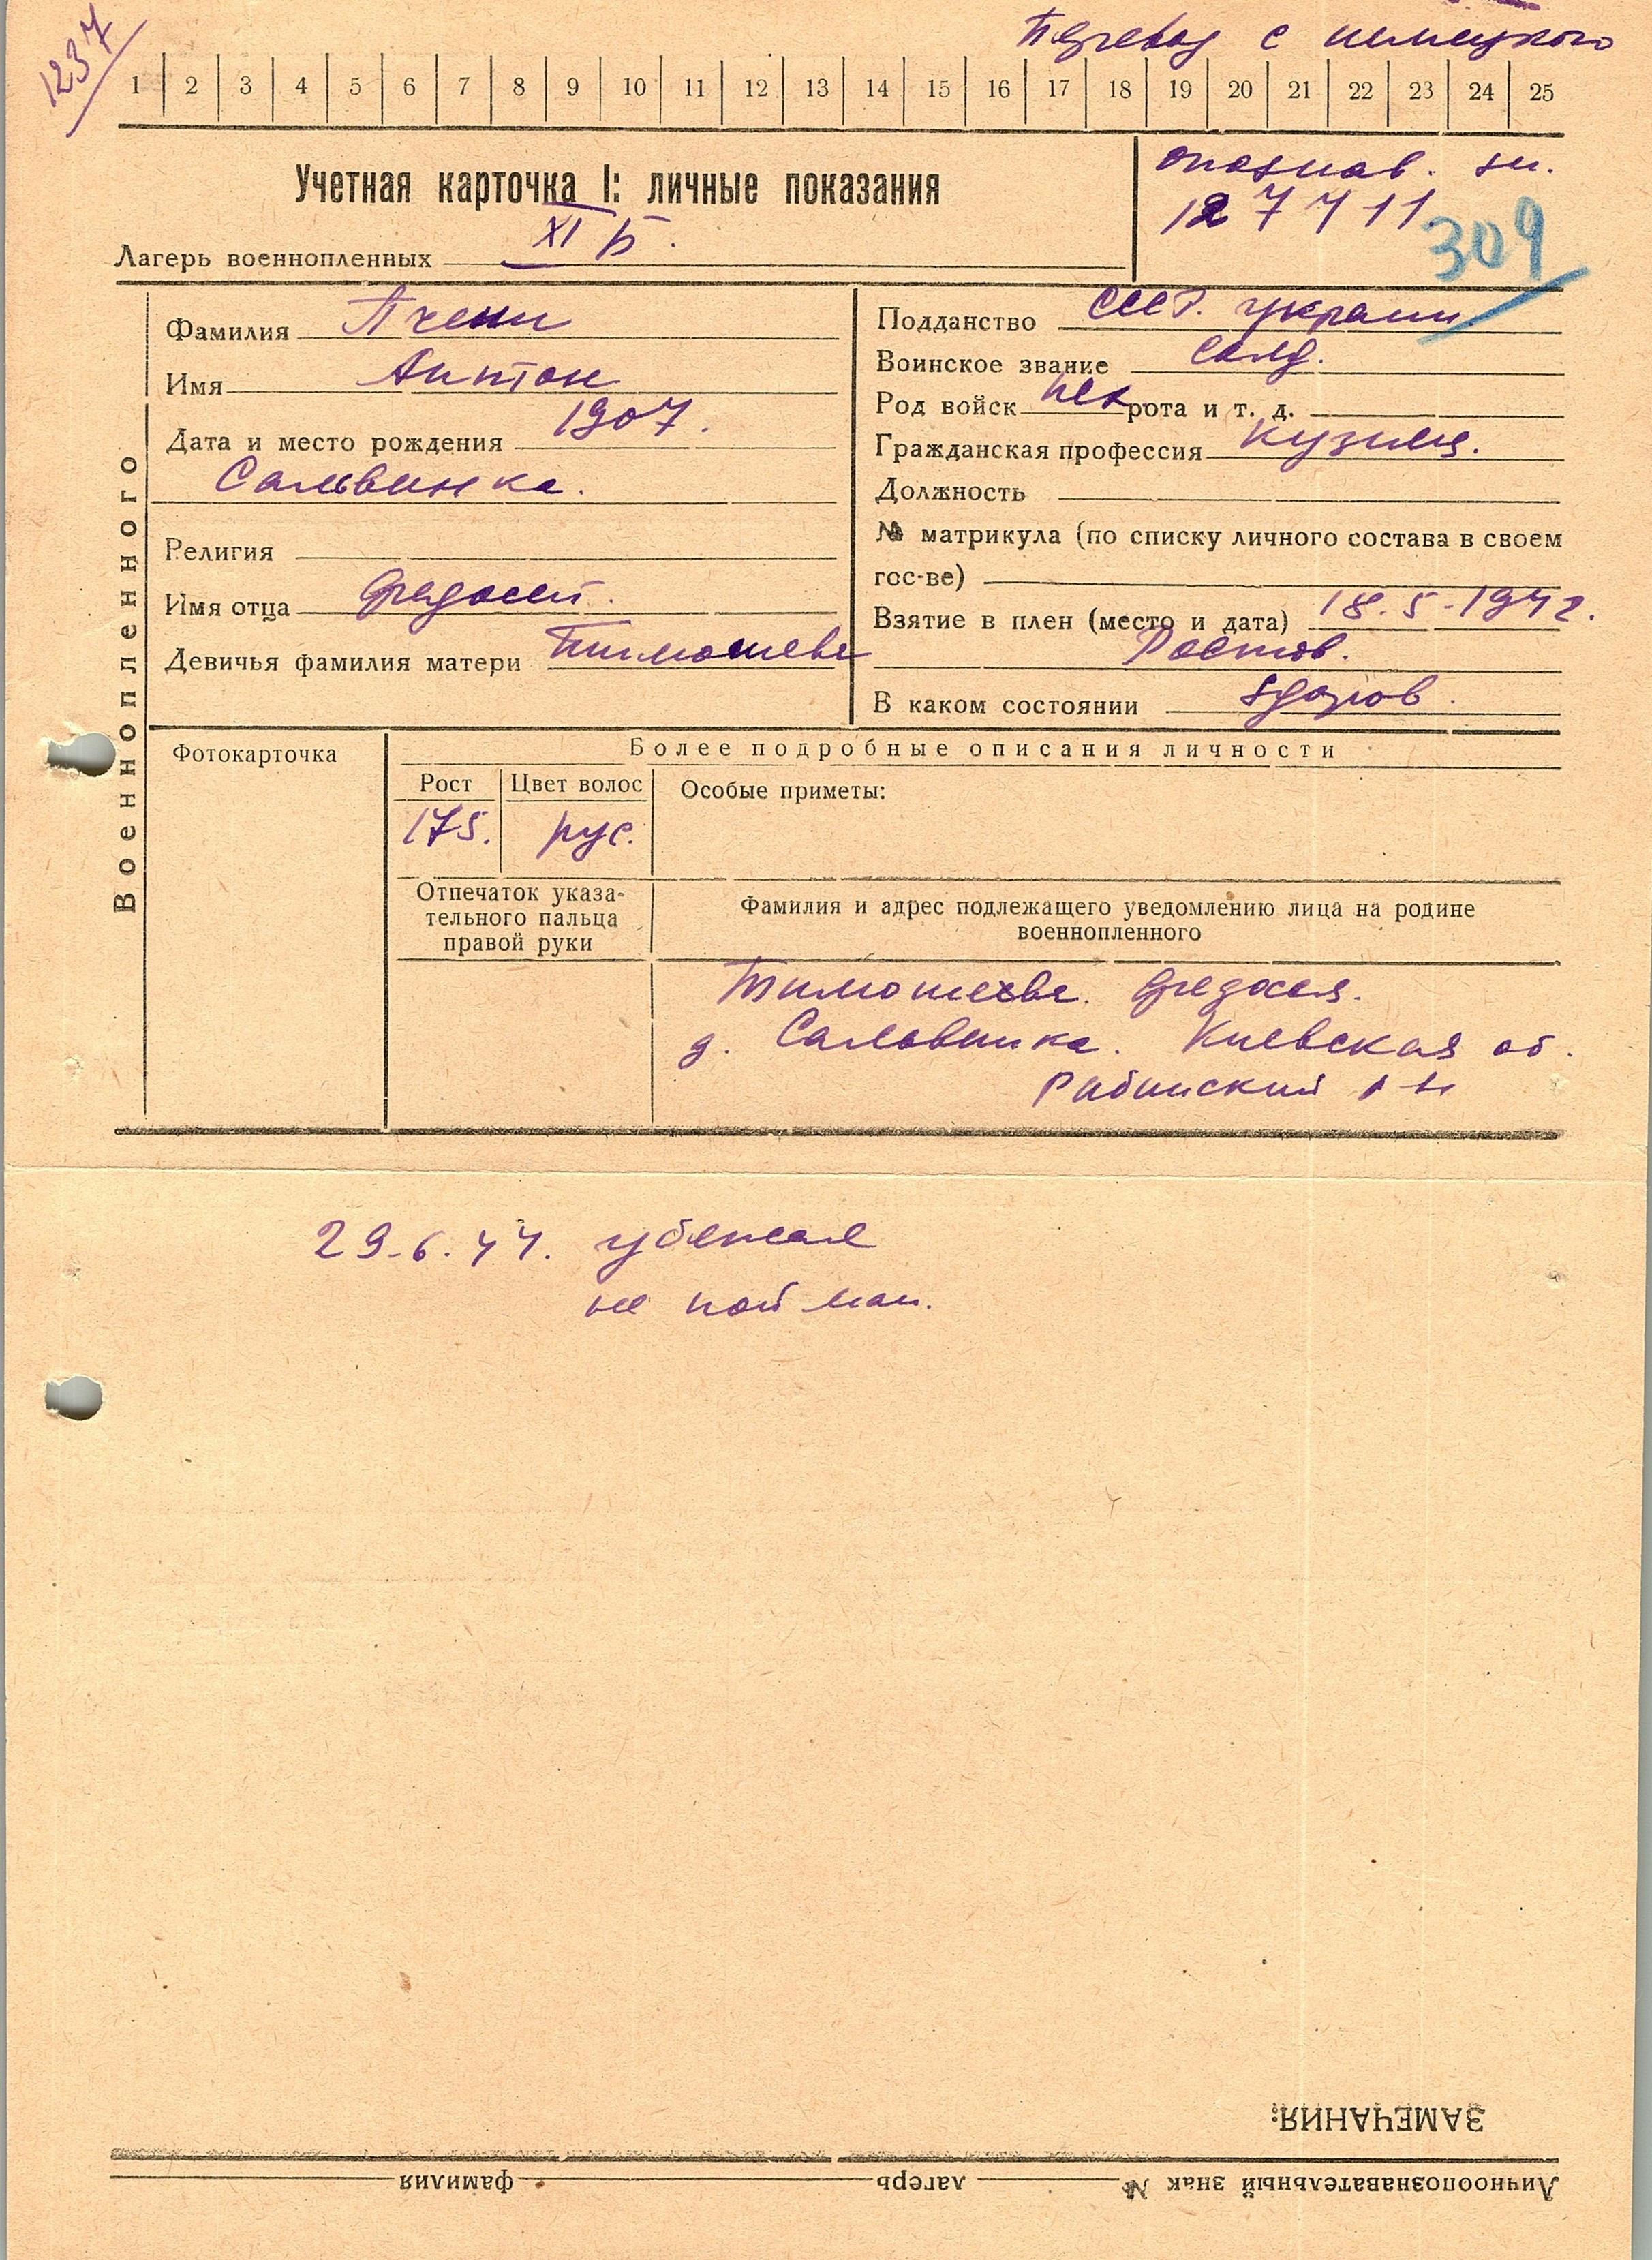 1237
Перевод с немецкого
1 2 3 4 5 6 7 8 9 10 11 12 13 14 15 16 17 18 19 20 21 22 23 24 25
Учетная карточка I: личные показания
опознав. зн.
127711
309
Лагерь военнопленных XI Б.
Военнопленного
Фамилия
Имя Антон
Дата и место рождения 1907.
Сальвинка.
Религия
Имя отца Федосей.
Девичья фамилия матери Тимошева
Подданство СССР. украин.
Воинское звание солд.
Род войск пех рота и т. д.
Гражданская профессия кузнец.
Должность
№ матрикула (по списку личного состава в своем
гос-ве)
Взятие в плен (место и дата) 18.5.1942.
Ростов.
В каком состоянии здоров.
Фотокарточка
Более подробные описания личности
Рост Цвет волос Особые приметы:
175. рус.
Отпечаток указа-
тельного пальца
правой руки
Фамилия и адрес подлежащего уведомлению лица на родине
военнопленного
Федосея.
д. Саловинка. Киевская об.
р-н
29.6.44. убежал
не пойман.
ЗАМЕЧАНИЯ:
Личноопознавательный знак № лагерь фамилия